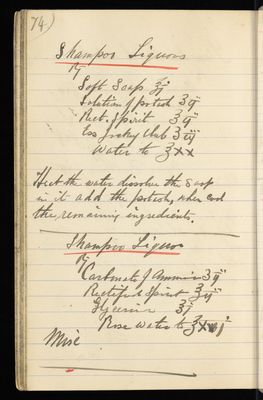 74)
Shampoo Liquors
℞
Soft Soap ℥ij
Solution of potash ʒij
Rect. Spirit ʒij
Ess Jockey Club ʒiij
Water to ℥xx
Heat the water dissolve the soap
in it add the potash, when cool
the remaining ingredients.
Shampoo Liquor
℞
Carbonate of Ammonia ʒij
Rectified Spirit ℥ij
Glycerin ℥j
Rose Water to
Mix